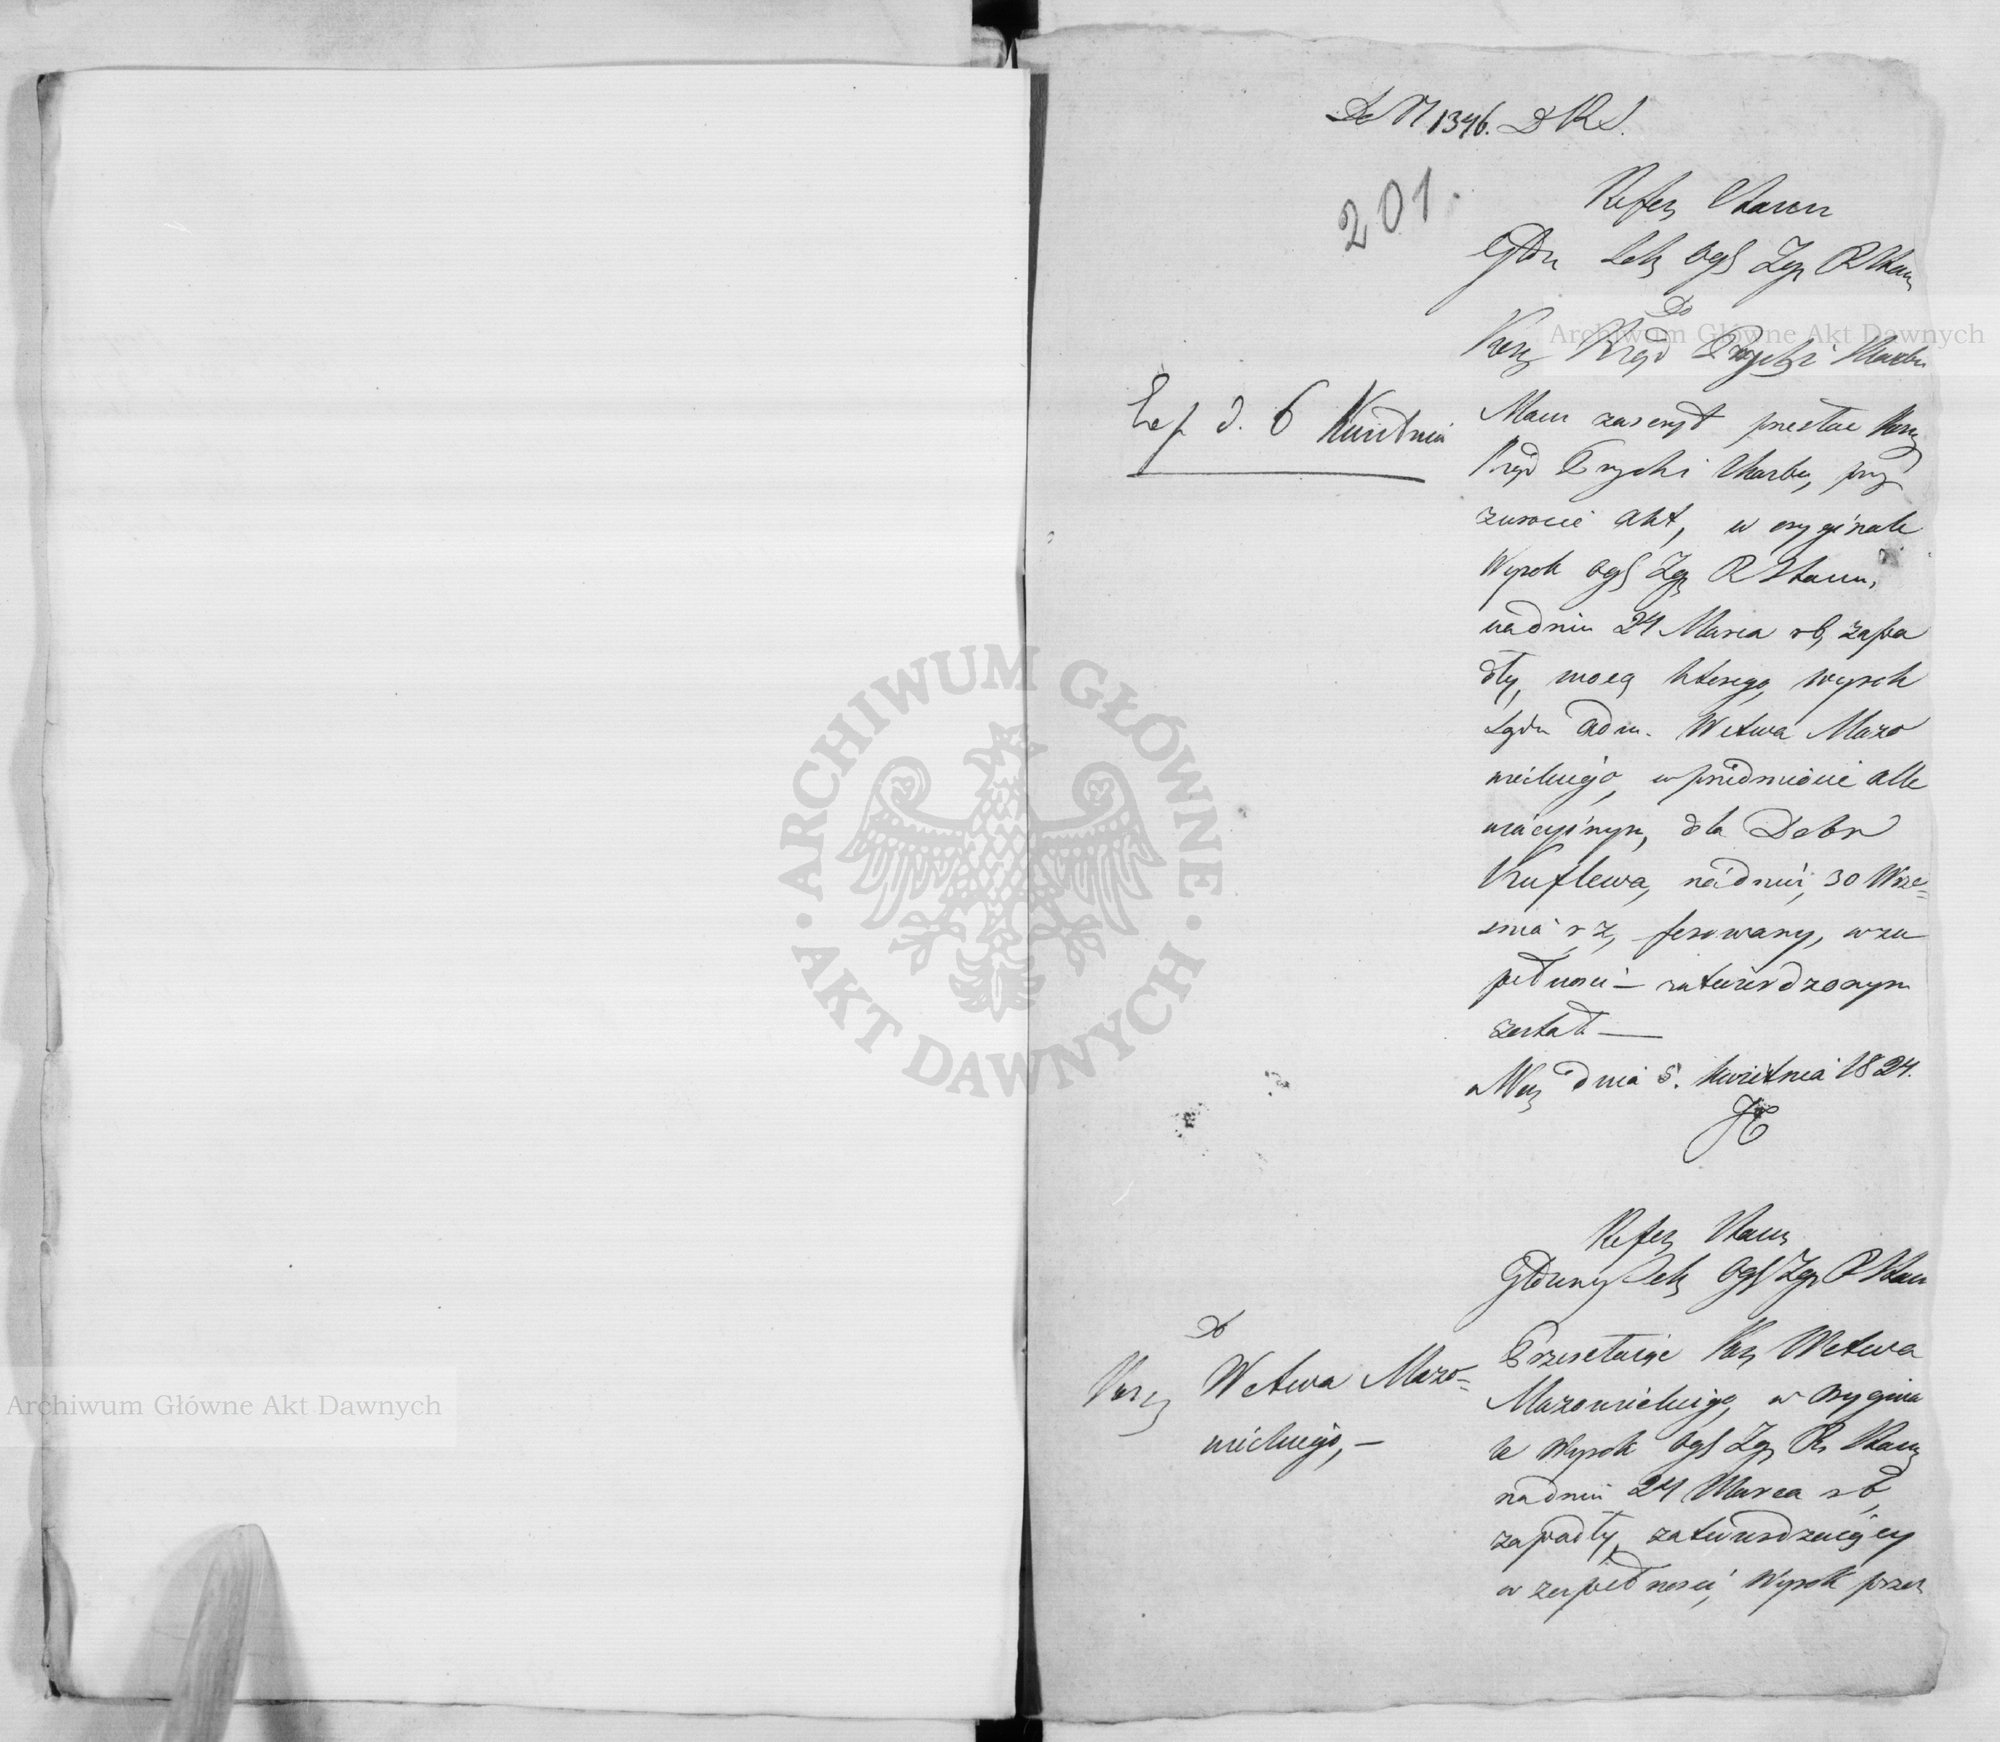 Do N 1346. D R S.
201.
Refer Stanu
Głów Sek Ogl Zgr R Stanu
Do
Komis Rząd Przych i Skarbu
Exp d. 6 Kwietnia
Mam zaszczyt przesłać Kom
Rząd Przych i Skarbu, przy
zwrocie akt, w oryginale
Wyrok Ogl Zgr R Stanu,
na dniu 24 Marca rb, zapa
dły, mocą którego, wyrok
Sądu Adm. Wctwa Mazo
wieckiego, w przedmiocie alle
wiacyinym, dla Dobr
Kuflewa, na dniu, 30 Wrze=
śnia r z, ferowany, w zu
pełności — zatwierdzonym
został —
Wwa dnia 5. Kwietnia 1824.
Refer Stanu
Główny Sek Ogl Zgr R Stanu
Do
Kom Wctwa Mazo=
wieckiego, —
Przesełaiąc Kom Wctwa
Mazowieckiego, w orygina
le Wyrok Ogl Zgr R Stanu
na dniu 24 Marca rb,
zapadły, zatwierdzaiący
w zupełności, Wyrok przez
ARCHIWUM GŁÓWNE · AKT DAWNYCH ·
Archiwum Główne Akt Dawnych
Archiwum Główne Akt Dawnych